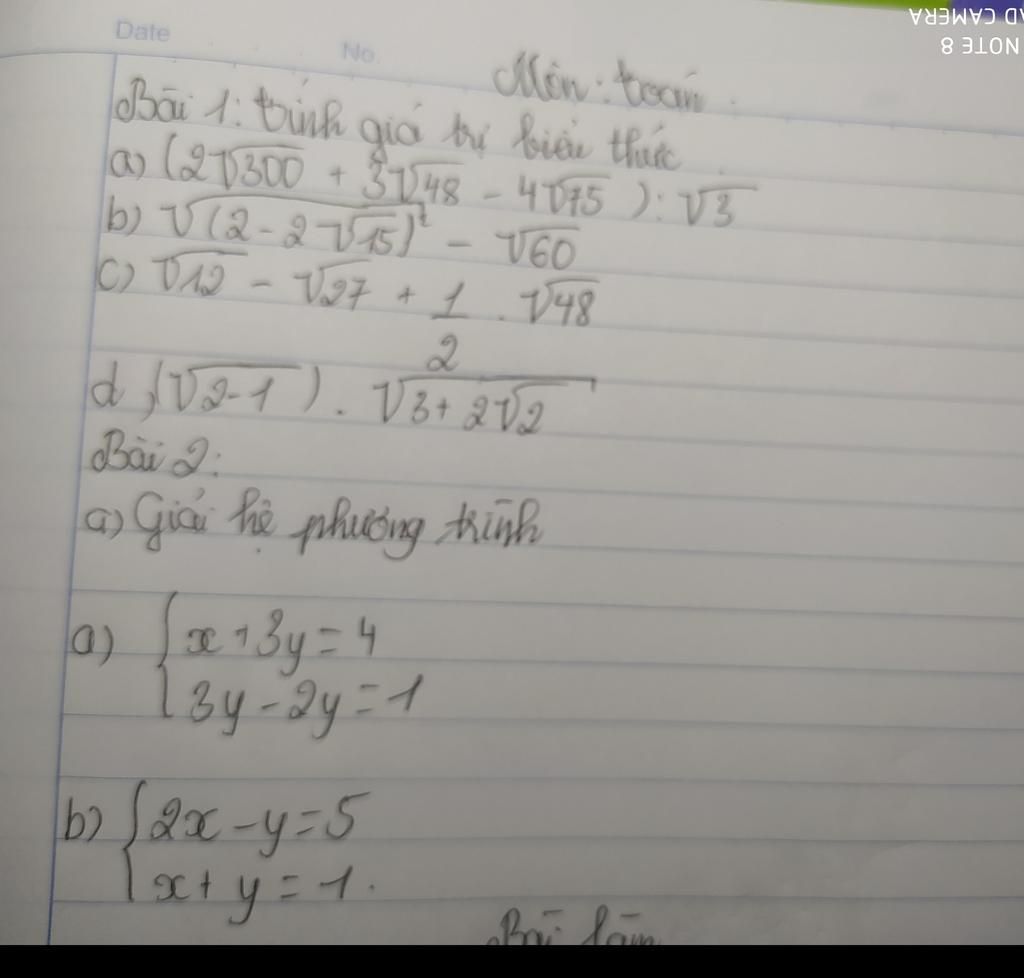 AD CAMERA
NOTE 8
Date
No.
Môn: toán.
Bài 1: tính giá trị biểu thức
a) (2√300 + 3√48 - 4√75) : √3
b) √(2 - 2√15)² - √60
c) √12 - √27 + 1/2 . √48
d, (√2-1) . √3 + 2√2
Bài 2:
a) Giải hệ phương trình
a) { x + 3y = 4
3y - 2y = 1
b) { 2x - y = 5
x + y = 1.
Bài làm